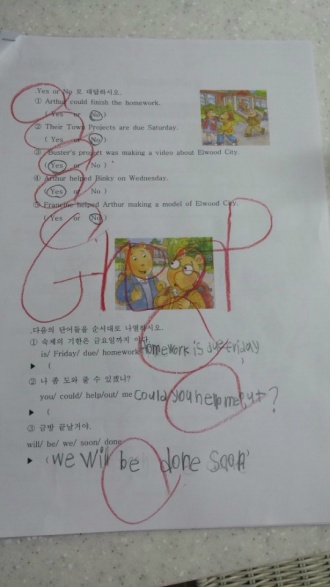 .Yes or No 로 대답하시오.
① Arthur could finish the homework.
( Yes or No )
② Their Town Projects are due Saturday.
( Yes or No )
③ Buster's project was making a video about Elwood City
( Yes or No )
④ Arthur helped Binky on Wednesday.
( Yes or No )
⑤ Francine helped Arthur making a model of Elwood City.
( Yes or No )
.다음의 단어들을 순서대로 나열하시오.
① 숙제의 기한은 금요일까지 이다.
is/ Friday/ due/ homework
Homework is due Friday
▶ (
② 나 좀 도와 줄 수 있겠니?
you/ could/ help/out/ me
Could you help me ?
▶ (
③ 금방 끝날거야.
will/ be/ we/ soon/ done
▶ ( we will be done soon